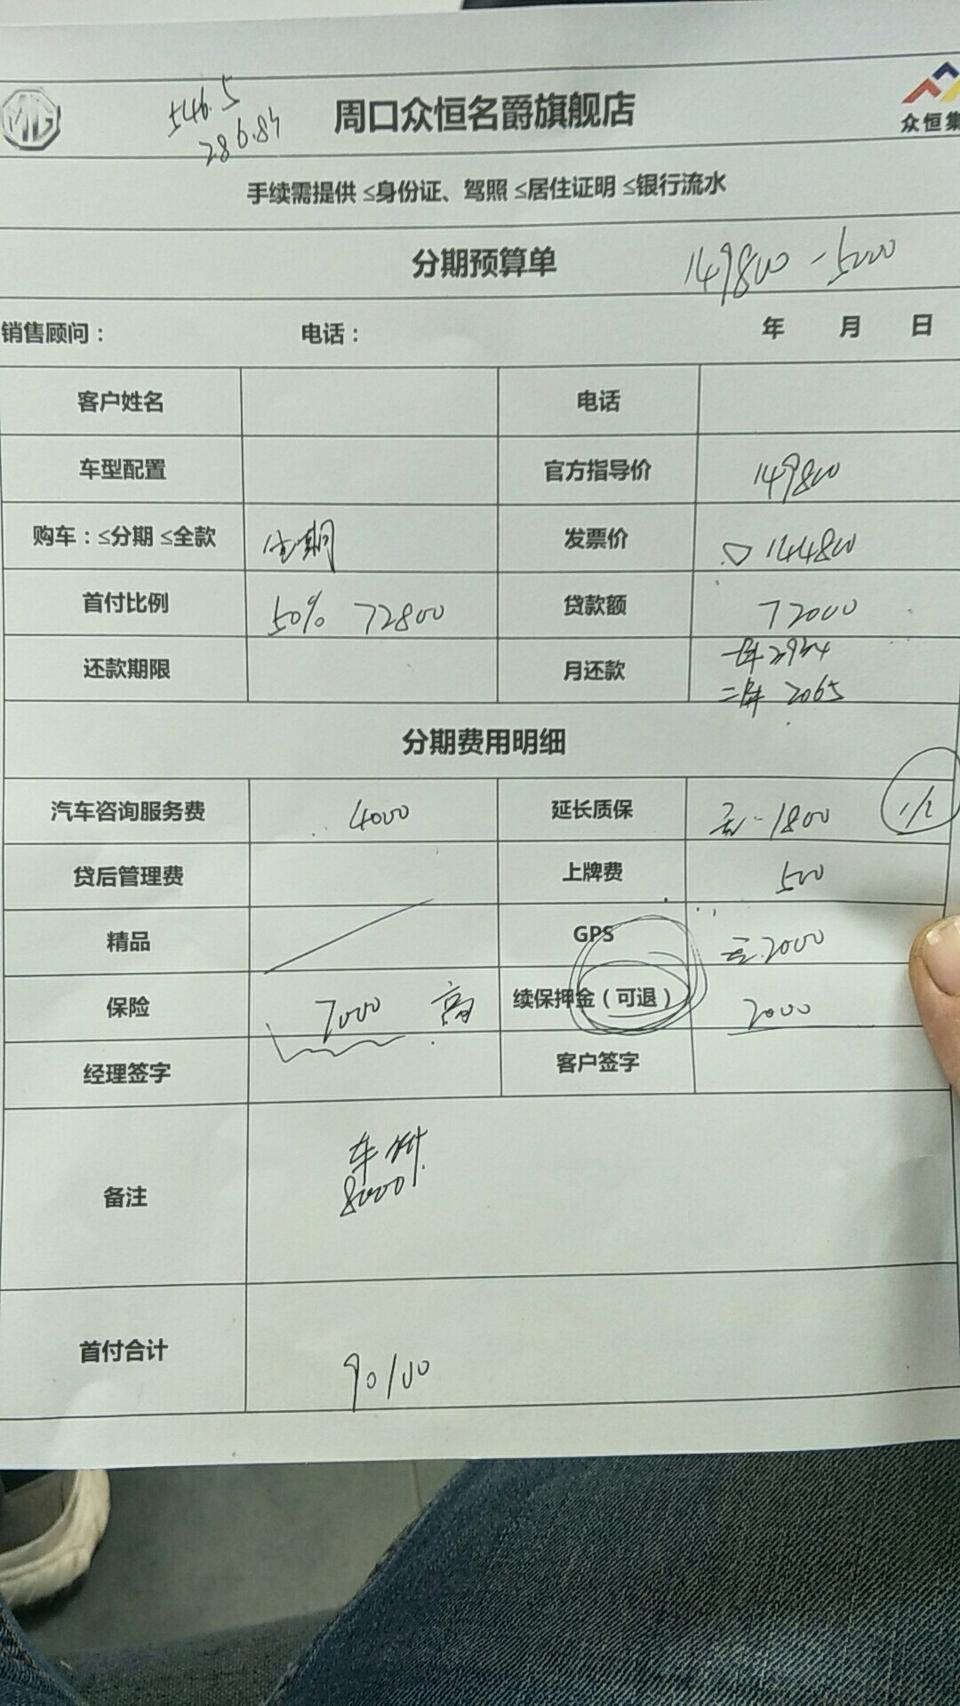 MG
546.5
286.84
周口众恒名爵旗舰店
众恒集
手续需提供 ≤身份证、驾照 ≤居住证明 ≤银行流水
分期预算单
149800 - 5000
销售顾问： 电话： 年 月 日
客户姓名 电话
车型配置 官方指导价 149800
购车：≤分期 ≤全款 期 发票价 144800
首付比例 50% 72800 贷款额 72000
还款期限 月还款 2934
2065
分期费用明细
汽车咨询服务费 4000 延长质保 1800
贷后管理费 上牌费 500
精品 GPS 2000
保险 7000 高 续保押金（可退） 2000
经理签字 客户签字
备注 车
8000
首付合计 90100